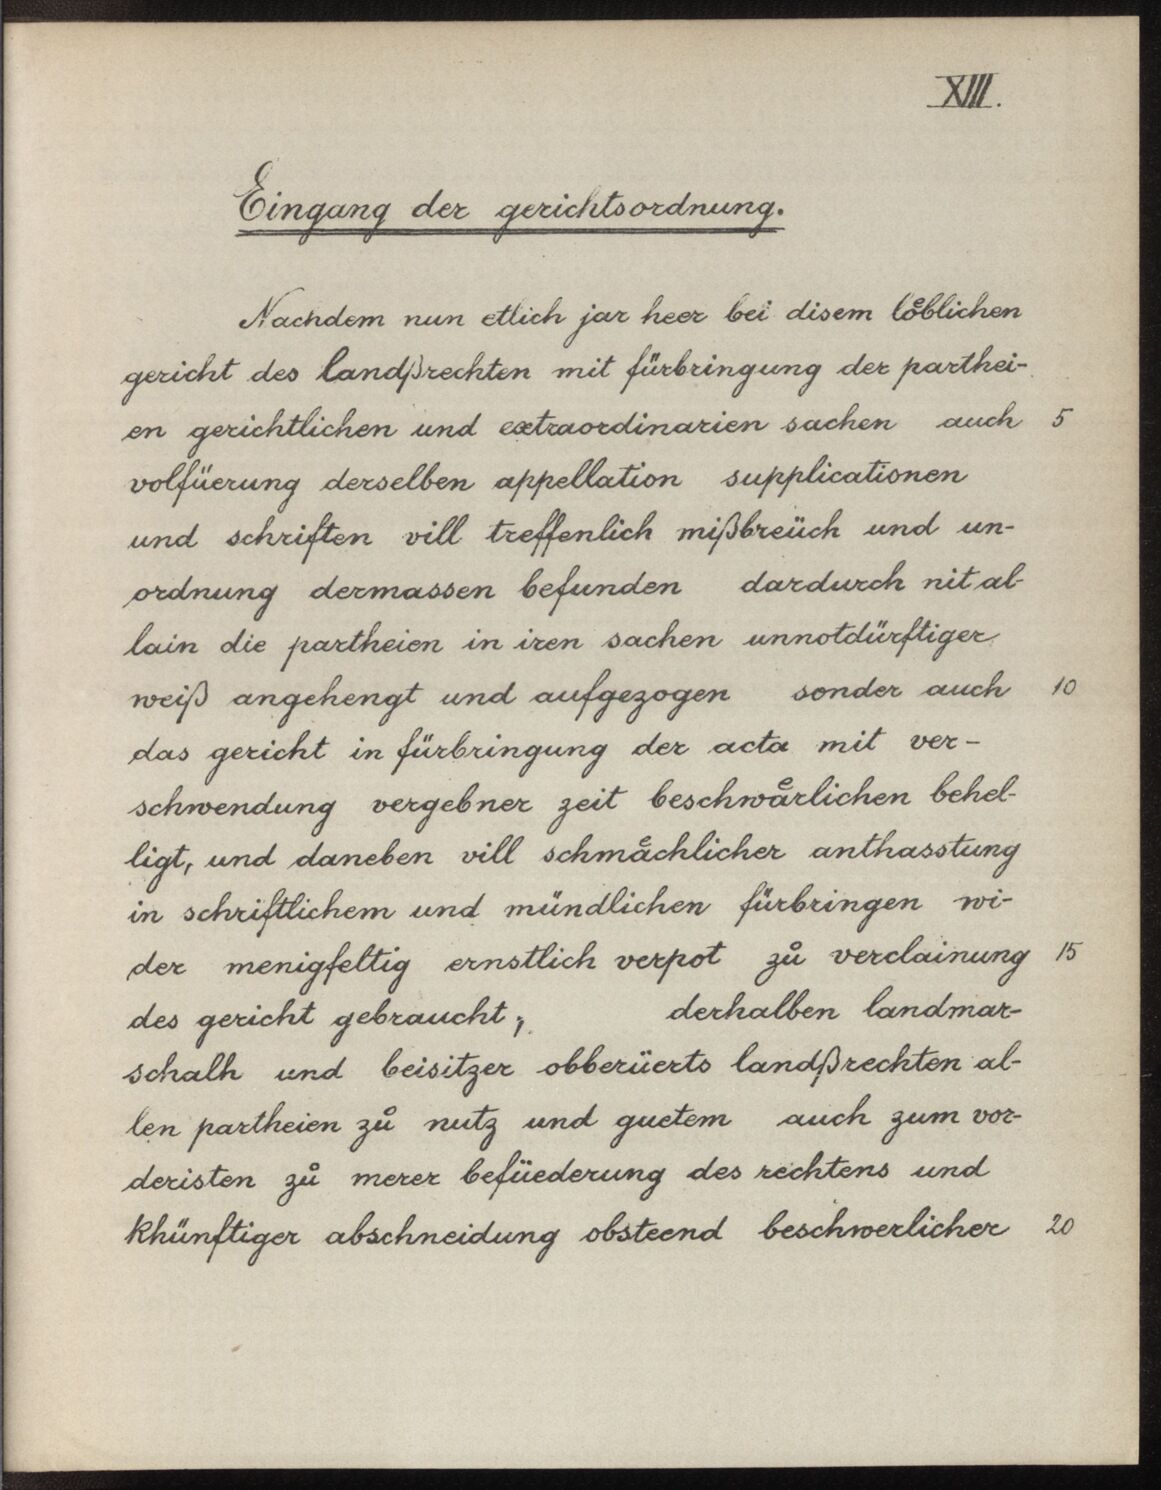 XIII.
Eingang der gerichtsordnung.
Nachdem nun etlich jar heer bei disem loͤblichen
gericht des landßrechten mit fürbringung der parthei-
en gerichtlichen und extraordinarien sachen auch 5
volfüerung derselben appellation supplicationen
und schriften vill treffenlich mißbreüch und un-
ordnung dermassen befunden dardurch nit al-
lain die partheien in iren sachen unnotdürftiger
weiß angehengt und aufgezogen sonder auch 10
das gericht in fürbringung der acta mit ver-
schwendung vergebner zeit beschwaͤrlichen behel-
ligt, und daneben vill schmaͤchlicher anthasstung
in schriftlichem und mündlichen fürbringen wi-
der menigfeltig ernstlich verpot zů verclainung 15
des gericht gebraucht; derhalben landmar-
schalh und beisitzer obberüerts landßrechten al-
len partheien zů nutz und guetem auch zum vor-
deristen zů merer befüederung des rechtens und
khünftiger abschneidung obsteend beschwerlicher 20